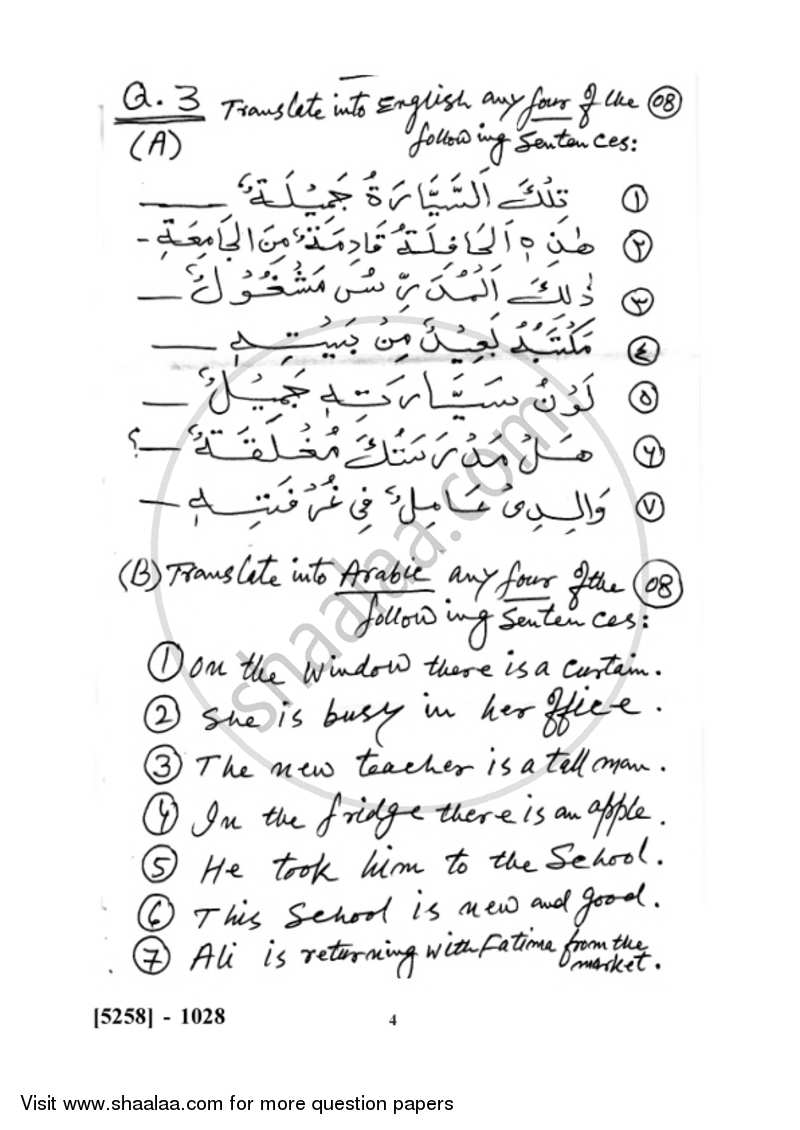 Q.3 Translate into English any four of the 08
(A) following Sentences:
١ تِلْكَ اَلسَّيَّارَةُ جَمِيْلَةٌ
٢ هٰذِهِ اَلحَافِلَةُ قَادِمَةٌ مِنَ الجَامِعَةِ -
٣ ذٰلِكَ اَلْمُدَرِّسُ مَشْغُوْلٌ
٤ مَكْتَبُهُ بَعِيْدٌ مِنْ بَيْتِهِ
٥ لَوْنُ سَيَّارَتِهِ جَمِيْلٌ
٦ هَلْ مَدْرَسَتُكَ مُغْلَقَةٌ ؟
٧ وَالِدِىْ عَامِلٌ فِي غُرْفَتِهِ
(B) Translate into Arabic any four of the 08
following Sentences:
1 On the window there is a curtain.
2 She is busy in her office.
3 The new teacher is a tall man.
4 In the fridge there is an apple.
5 He took him to the School.
6 This School is new and good.
7 Ali is returning with Fatima from the
market.
[5258] - 1028
4
Visit www.shaalaa.com for more question papers
shaalaa.com